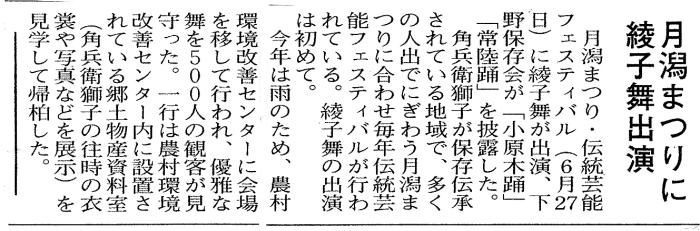 月潟まつりに
綾子舞出演
月潟まつり・伝統芸能
フェスティバル(6月27
日)に綾子舞が出演、下
野保存会が「小原木踊」
「常陸踊」を披露した。
角兵衛獅子が保存伝承
されている地域で、多く
の人出でにぎわう月潟ま
つりに合わせ毎年伝統芸
能フェスティバルが行わ
れている。綾子舞の出演
は初めて。
今年は雨のため、農村
環境改善センターに会場
を移して行われ、優雅な
舞を500人の観客が見
守った。一行は農村環境
改善センター内に設置さ
れている郷土物産資料室
(角兵衛獅子の往時の衣
裳や写真などを展示)を
見学して帰柏した。